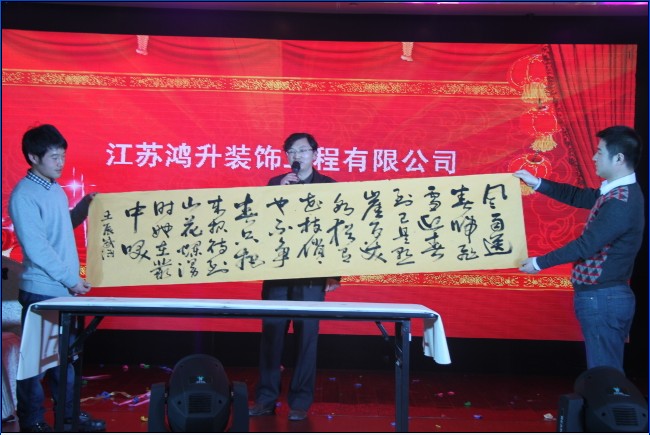 江苏鸿升装饰工程有限公司
风雨送
春归飞
雪迎春
到已是悬
崖百丈
冰犹有
花枝俏
也不争
春只把
来报待到
山花烂漫
时她在叢
中笑
壬辰